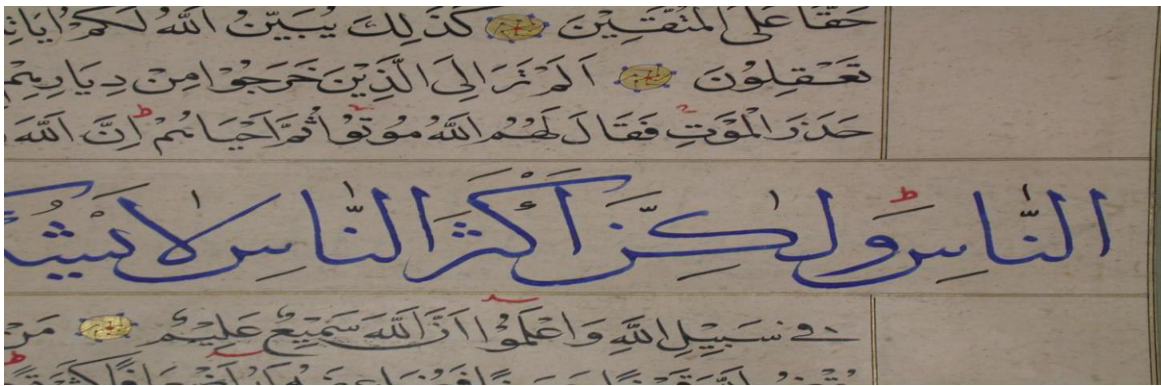 حَقًّا عَلَى الْمُتَّقِينَ كَذَلِكَ يُبَيِّنُ اللَّهُ لَكُمْ اٰيَاتِهِ
تَعْقِلُونَ اَلَمْ تَرَ اِلَى الَّذِينَ خَرَجُوا مِنْ دِيَارِهِمْ
حَذَرَ الْمَوْتِ فَقَالَ لَهُمُ اللَّهُ مُوتُوا ثُمَّ اَحْيَاهُمْ اِنَّ اللَّهَ
النَّاسِ وَلٰكِنَّ اَكْثَرَ النَّاسِ لَا يَشْكُ
فِي سَبِيلِ اللَّهِ وَاعْلَمُوا اَنَّ اللَّهَ سَمِيعٌ عَلِيمٌ مَنْ